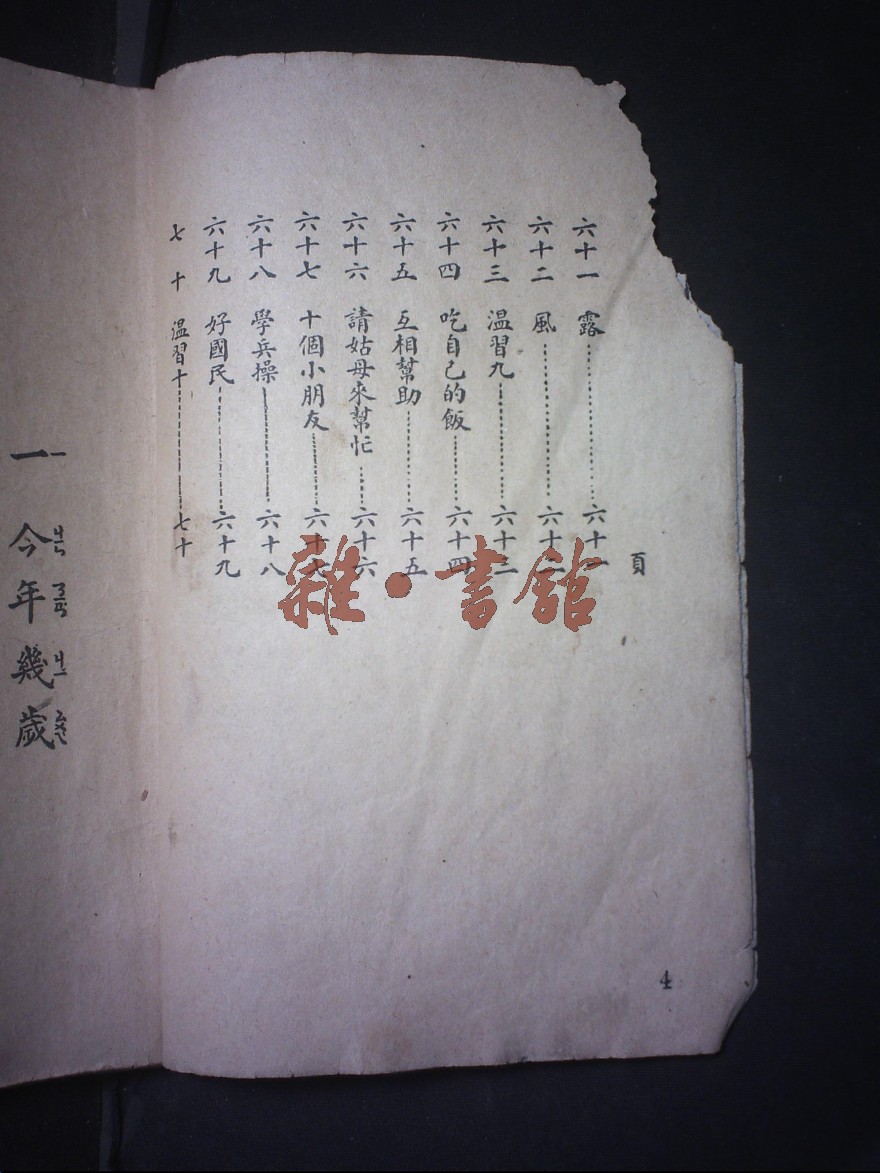 頁
六十一 露……六十一
六十二 風……六十二
六十三 温習九……六十三
六十四 吃自己的飯……六十四
六十五 互相幫助……六十五
六十六 請姑母來幫忙……六十六
六十七 十個小朋友……六十七
六十八 學兵操……六十八
六十九 好國民……六十九
七十 温習十……七十
4
一 今年幾歲
ㄧ ㄐㄣ ㄋㄧㄢ ㄐㄧ ㄙㄨㄟ
雜·書館